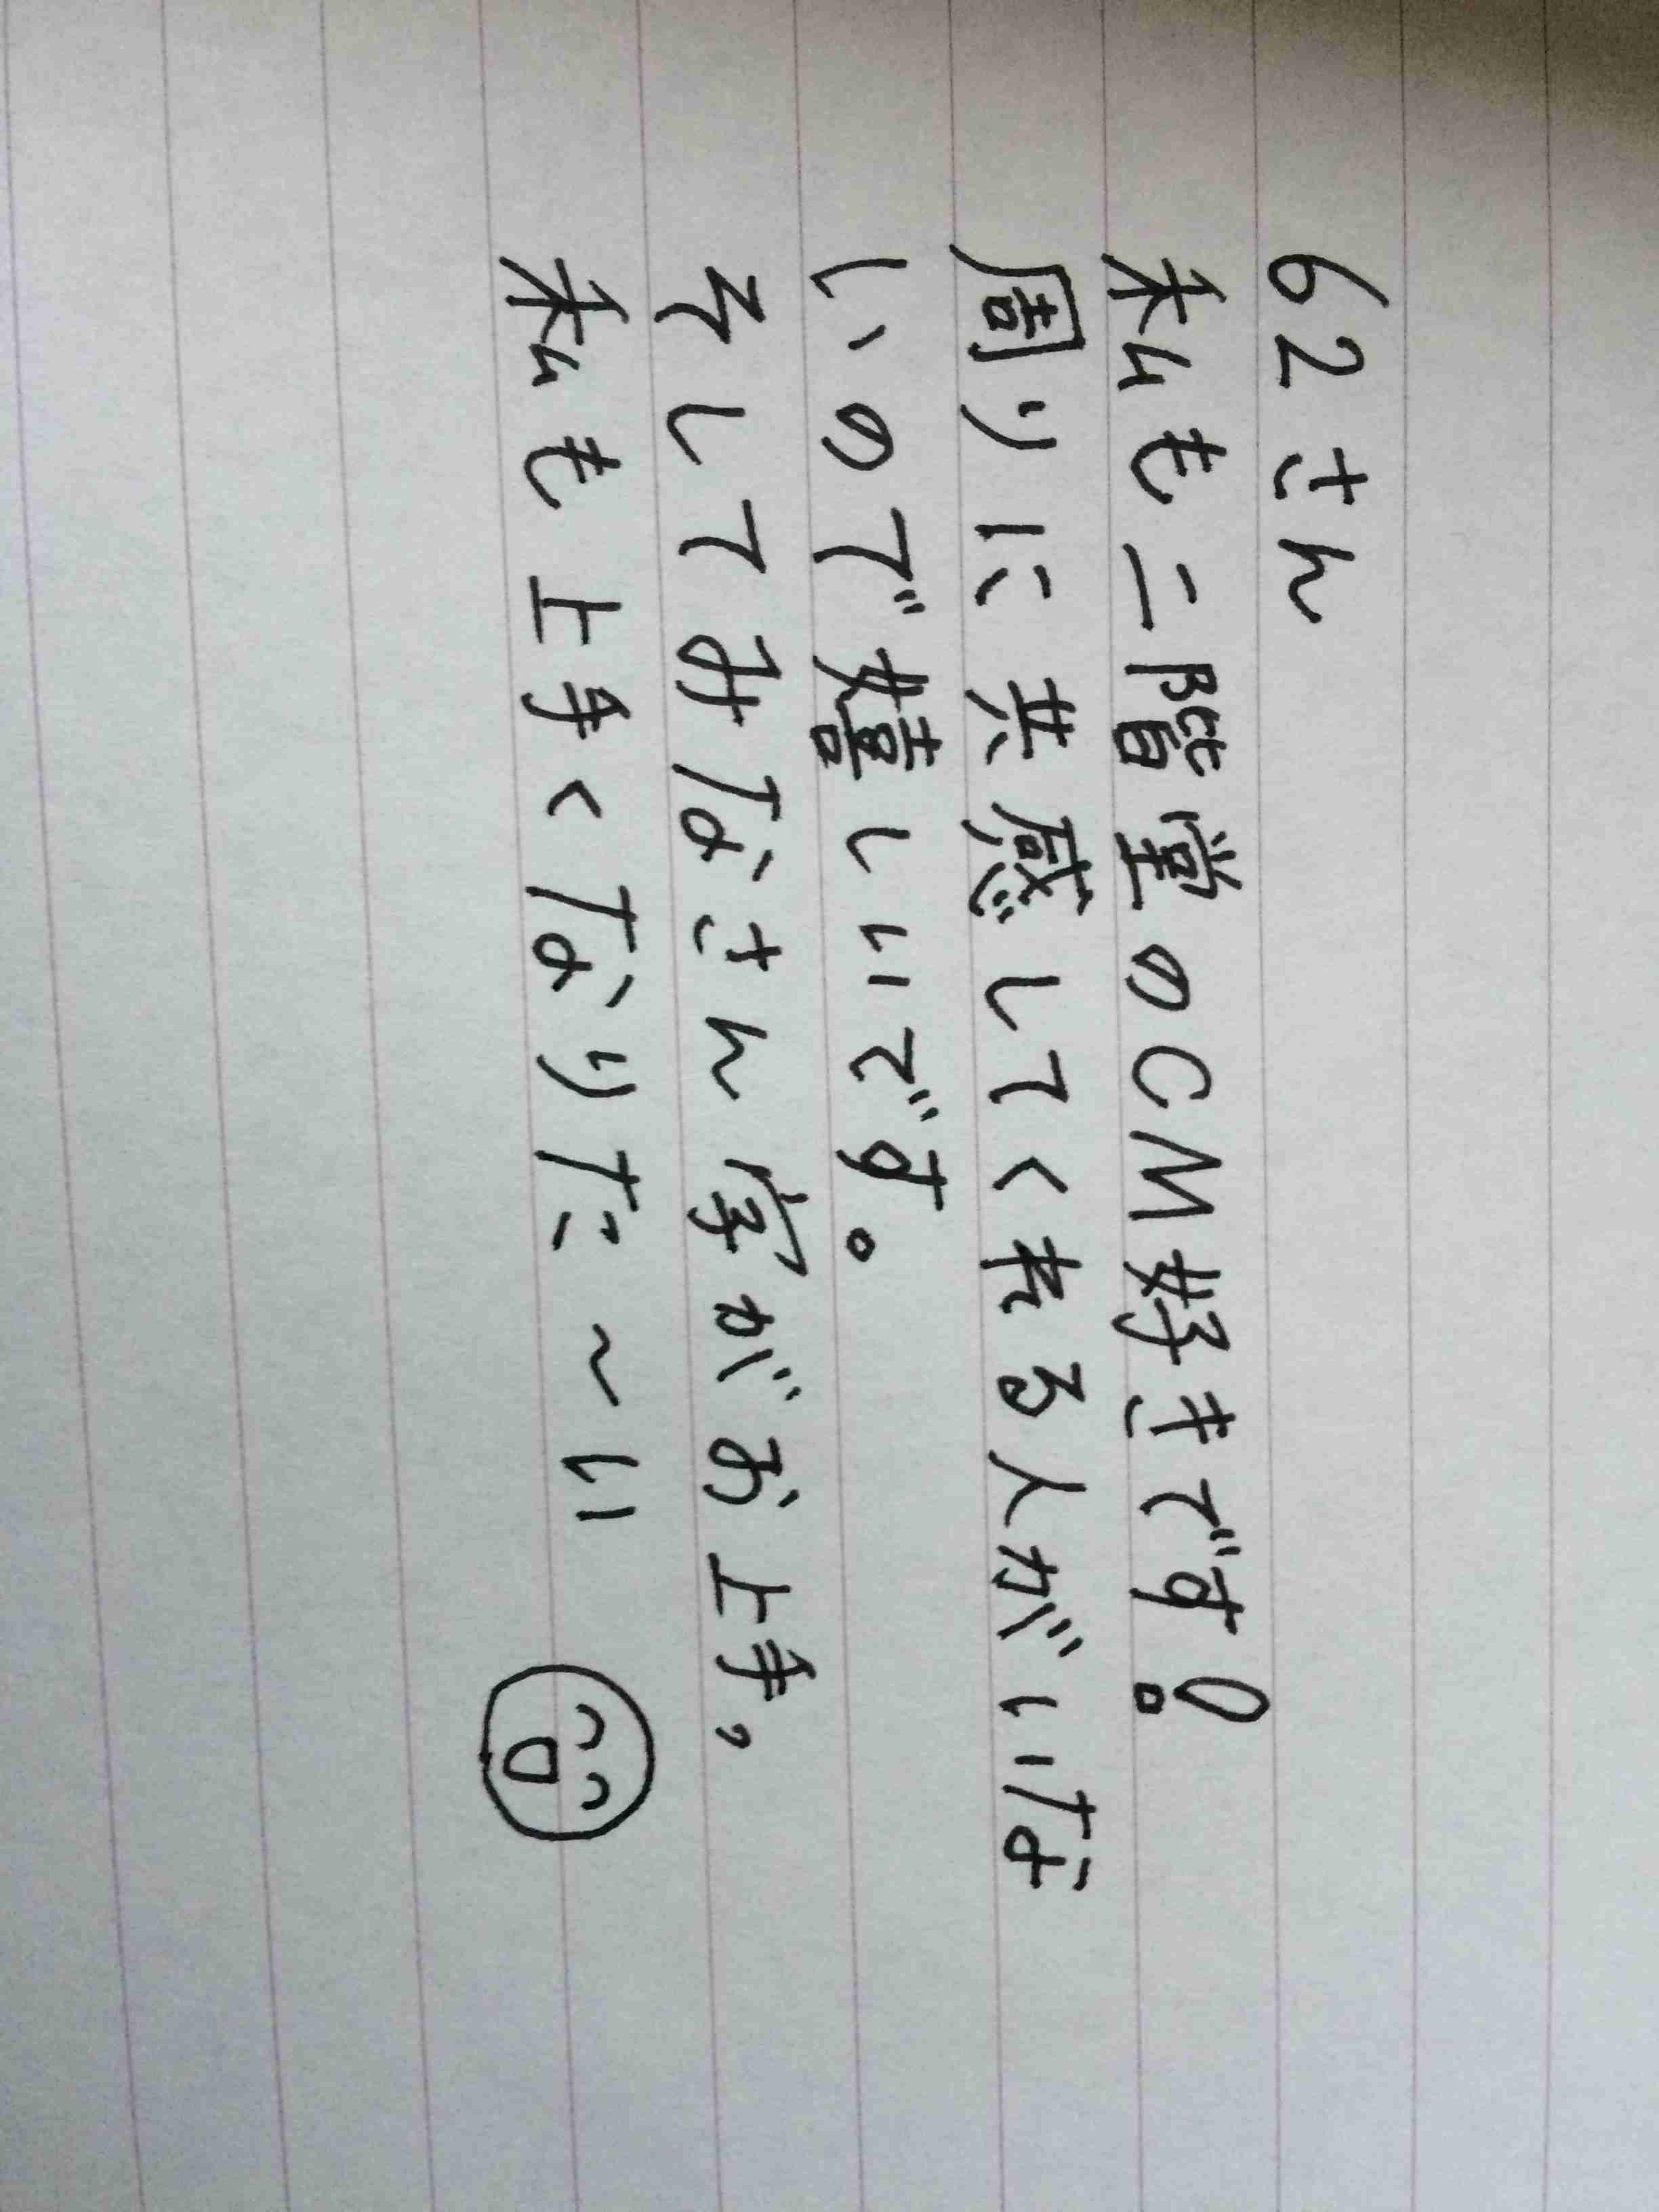 62さん
私も二階堂のCM好きです!
周りに共感してくれる人がいな
いので嬉しいです。
そしてみなさん字がお上手,
私も上手くなりた〜い